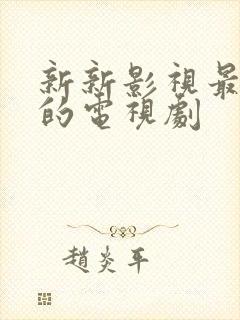 新新影視最
的電視劇
趙炎平